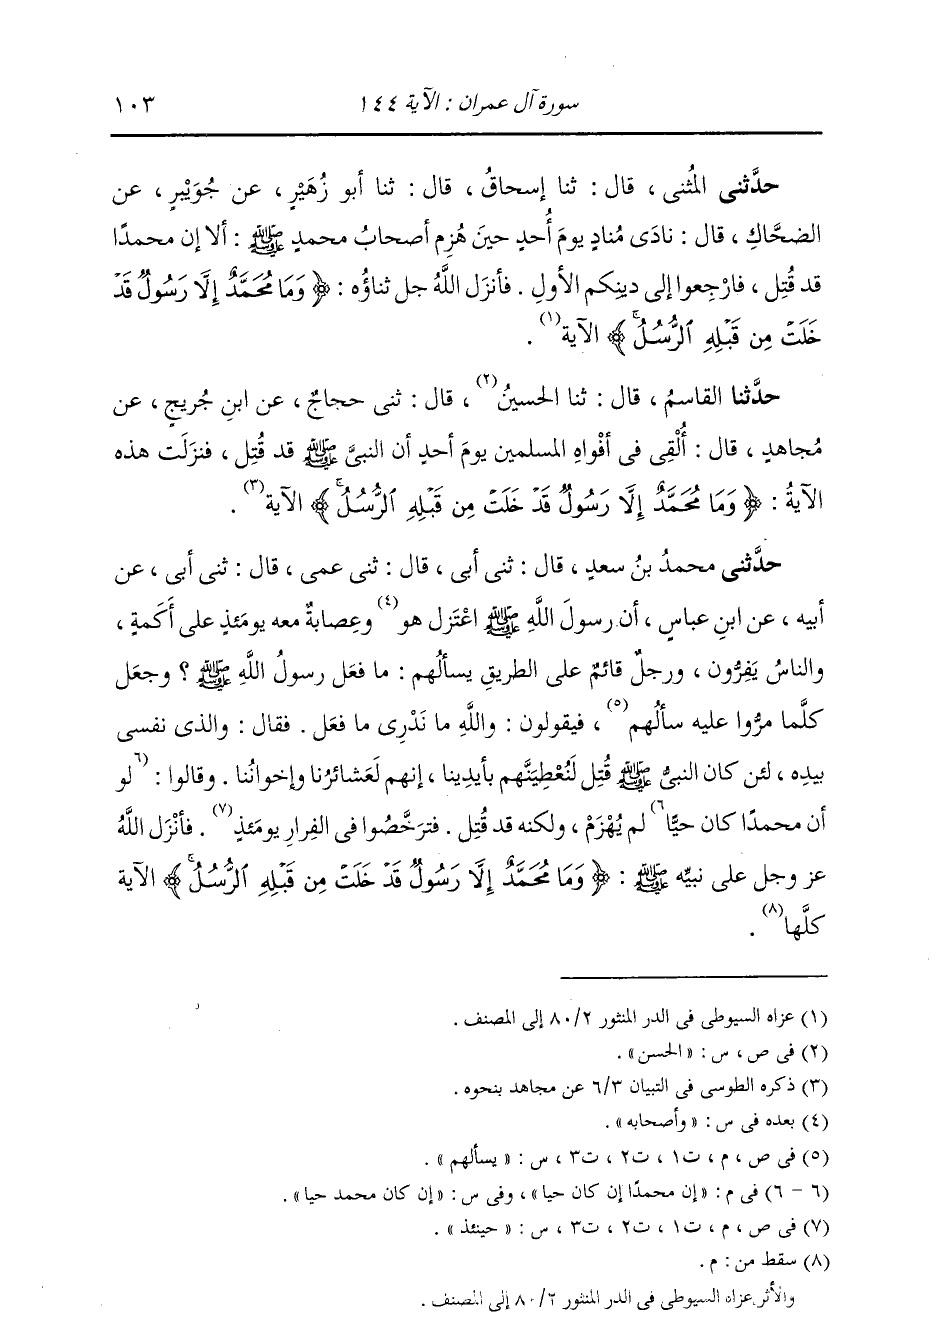 سورة آل عمران : الآية ١٤٤ ١٠٣
حدَّثني المُثنى ، قال : ثنا إسحاقُ ، قال : ثنا أبو زُهَيْرٍ ، عن جُوَيْبرٍ ، عن
الضحَّاكِ ، قال : نادَى مُنادٍ يومَ أُحدٍ حينَ هُزِم أصحابُ محمدٍ ﷺ : ألا إن محمدًا
قد قُتِل ، فارْجِعوا إلى دينِكم الأولِ . فأنزَل اللَّهُ جل ثناؤُه : ﴿ وَمَا مُحَمَّدٌ إِلَّا رَسُولٌ قَدْ
خَلَتْ مِن قَبْلِهِ ٱلرُّسُلُ ۚ ﴾ الآية(١) .
حدَّثنا القاسمُ ، قال : ثنا الحسينُ(٢) ، قال : ثنى حجاجٌ ، عن ابنِ جُريجٍ ، عن
مُجاهدٍ ، قال : أُلْقِى فى أفْواهِ المسلمين يومَ أحدٍ أن النبىَّ ﷺ قد قُتِل ، فنزَلَت هذه
الآيةُ : ﴿ وَمَا مُحَمَّدٌ إِلَّا رَسُولٌ قَدْ خَلَتْ مِن قَبْلِهِ ٱلرُّسُلُ ۚ ﴾ الآية(٣) .
حدَّثنى محمدُ بنُ سعدٍ ، قال : ثنى أبى ، قال : ثنى عمى ، قال : ثنى أبى ، عن
أبيه ، عن ابنِ عباسٍ ، أن رسولَ اللَّهِ ﷺ اعْتَزل هو(٤) وعِصابةٌ معه يومَئذٍ على أَكَمةٍ ،
والناسُ يَفِرُّون ، ورجلٌ قائمٌ على الطريقِ يسألُهم : ما فعَل رسولُ اللَّهِ ﷺ ؟ وجعَل
كلَّما مرُّوا عليه سألُهم(٥) ، فيقولون : واللَّهِ ما نَدْرِى ما فعَل . فقال : والذى نفسى
بيدِه ، لئن كان النبىُّ ﷺ قُتِل لَنُعْطِيَنَّهم بأيدِينا ، إنهم لَعَشائرُنا وإخوانُنا . وقالوا : (٦لو
أن محمدًا كان حيًّا٦) لم يُهْزَمْ ، ولكنه قد قُتِل . فترَخَّصُوا فى الفِرارِ يومَئذٍ(٧) . فأنْزَل اللَّهُ
عز وجل على نبيِّه ﷺ : ﴿ وَمَا مُحَمَّدٌ إِلَّا رَسُولٌ قَدْ خَلَتْ مِن قَبْلِهِ ٱلرُّسُلُ ۚ ﴾ الآية
كلَّها(٨) .
(١) عزاه السيوطى فى الدر المنثور ٨٠/٢ إلى المصنف .
(٢) فى ص ، س : « الحسن » .
(٣) ذكره الطوسى فى التبيان ٦/٣ عن مجاهد بنحوه .
(٤) بعده فى س : « وأصحابه » .
(٥) فى ص ، م ، ت١ ، ت٢ ، ت٣ ، س : « يسألهم » .
(٦ - ٦) فى م : « إن محمدًا إن كان حيا » ، وفى س : « إن كان محمد حيا » .
(٧) فى ص ، م ، ت١ ، ت٢ ، ت٣ ، س : « حينئذ » .
(٨) سقط من : م .
والأثر عزاه السيوطى فى الدر المنثور ٨٠/٦ إلى المصنف .